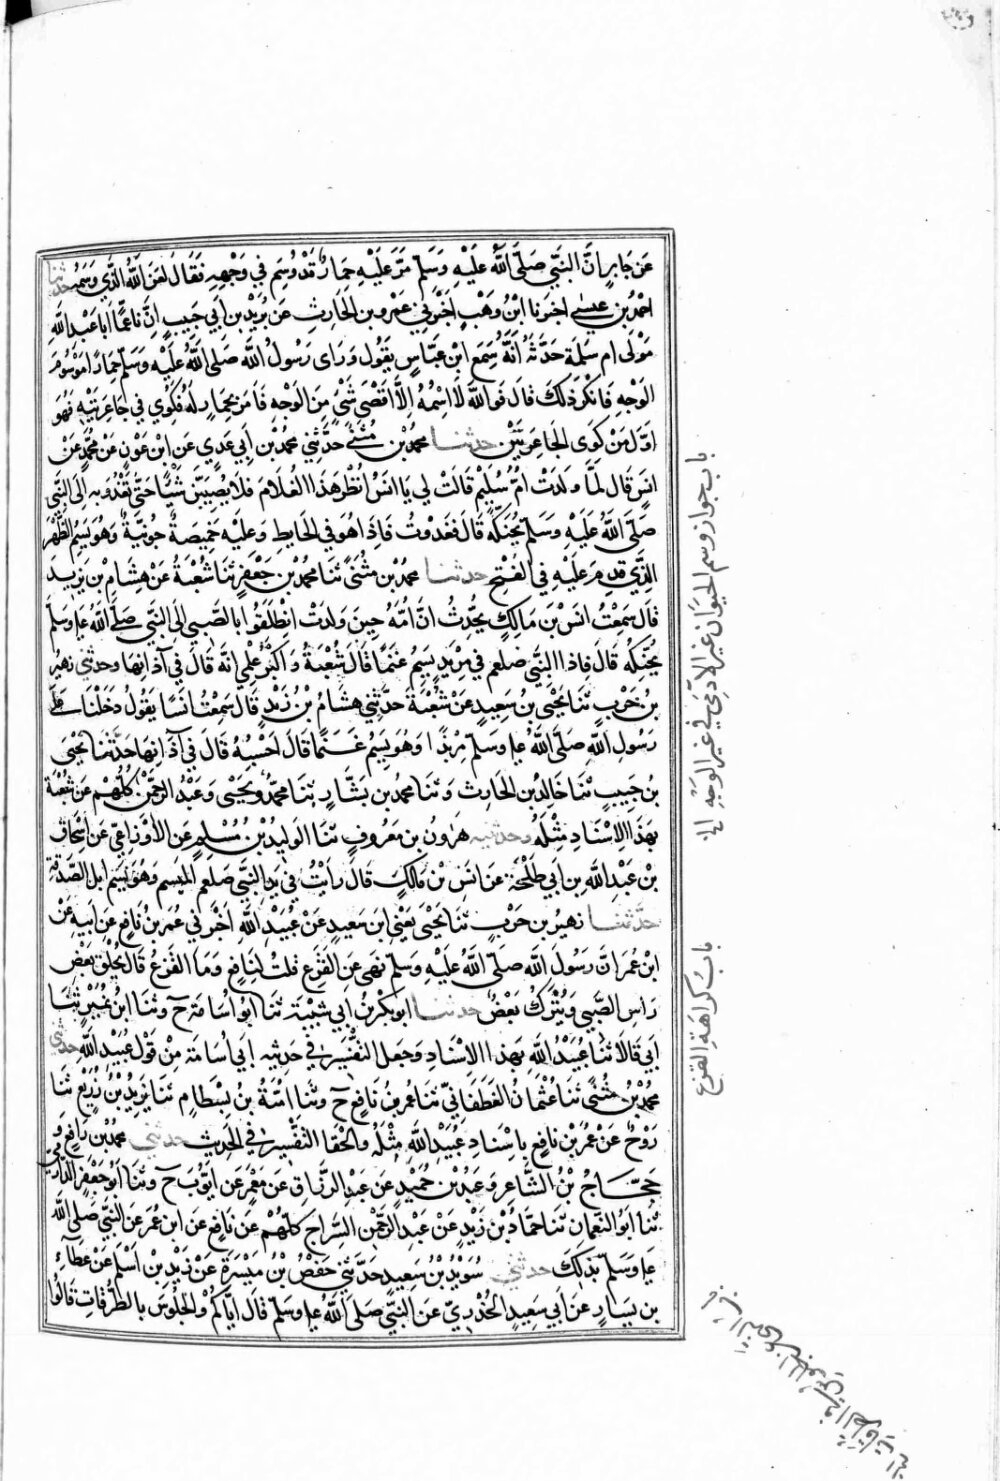 عَن جَابِرٍ اَنَّ النَّبِيَّ صَلَّى اللَّهُ عَلَيْهِ وَسَلَّمَ مَرَّ عَلَيْهِ حِمَارٌ قَدْ وُسِمَ فِي وَجْهِهِ فَقَالَ لَعَنَ اللَّهُ الَّذِي وَسَمَهُ حدثنا
احمدُ بن عيسى اخبرنا ابْنُ وَهْبٍ اخبرَني عَمْرو بن الحَارِثِ عَن يَزِيْد بن اَبي حَبيبٍ اَنَّ نَاعِمًا اَبا عَبْدِ اللَّهِ
مَوْلى ام سَلَمة حَدَّثَهُ انَّهُ سَمِعَ ابن عَبَّاسٍ يَقُول وَرَاى رَسُولُ اللَّه صَلى اللَّهُ عَلَيْهِ وَسَلَّم حِمَارًا مَوْسُومَ
الوَجْهِ فَانكَرَ ذلكَ قال فَوَاللَّه لَا اَسِمُهُ اِلَّا اَقْصَى شَيْءٍ مِنَ الوَجْه فَامَرَ بحمارٍ لَهُ فَكُوِيَ في جَاعِرَتَيْهِ فَهُوَ
اوّلُ مَنْ كَوَى الجاعِرتَيْن حدثنا محمدُ بن مُثنى حدَّثني محمدُ بْن اَبي عَدي عَن ابْن عَوْنٍ عَنْ محمدٍ عَنْ
انسٍ قال لمّا ولَدَتْ اُمُّ سُلَيمٍ قالت لي يَا انَسُ انْظُرْ هَذا الغُلامَ فَلا يُصِيبَنَّ شَيْئًا حَتَّى تَغْدُوَ بِهِ اِلى النَّبي
صَلّى اللَّهُ عَلَيْهِ وَسَلَّم يُحَنّكُهُ قَالَ فَغَدَوْتُ فَاِذَا هُوَ في الحَايطِ وَعَلَيْه خَمِيصَةٌ جُونِيَّةٌ وَهُوَ يَسِمُ الظَّهْرَ
الذّي قدِمَ عَلَيْهِ في الفَتْحِ حدثنا محمدُ بْن مُثَنًى ثنا محمدُ بْن جَعْفَرٍ ثنا شُعْبَةُ عَنْ هِشَامِ بْن يَزِيد
قالَ سَمِعْتُ انَسَ بْنَ مَالِكٍ يُحَدِّثُ انَّ اُمَّهُ حِينَ وَلدتْ اِنْطَلَقُوا بالصَّبي الى النَّبيِّ صَلّى اللَّهُ عليه وسَلَّمَ
يُحَنّكهُ قال فاِذَا النَّبيُّ صلعم في مِرْبَدٍ يَسِمُ غَنَمًا قَالَ شُعْبَةُ وَاكْثَرُ عِلْمِي انّهُ قَالَ فِي آذَانِهَا وحدثني زهيرُ
بن حَرْبٍ ثنا يَحْيَى بن سَعِيدٍ عَنْ شُعْبَةَ حَدَّثَنِي هشامُ بْنُ زَيْدٍ قَالَ سَمِعْتُ انَسًا يَقُولُ دَخَلْنَا على
رَسُولِ اللَّهِ صَلَّى اللَّهُ عليه وسَلّم مِرْبَدًا وَهُوَ يَسِمُ غَنَمًا قَالَ اَحْسِبُهُ قَالَ فِي آذَانِهَا حَدّثنا يَحْيَى
بن حَبيبٍ ثنا خَالِدُ بن الحَارث وَثنا محمدُ بن بَشَّارٍ ثنا محمدٌ ويَحْيَى وَعَبْدُ الرحمن كُلُّهُم عَن شُعْبَةَ
بهذا الاِسْنَادِ مثلَهُ وحدثنيه هَرُونُ بن مَعْرُوفٍ ثنا الوَلِيدُ بْنُ مُسْلِمٍ عَنِ الاَوْزَاعِيِّ عَن اِسْحَاقَ
بْن عَبْدِ اللَّه بن اَبي طَلْحَةَ عَن انَس بْن مَالِكٍ قَالَ رَاَيْتُ في يَدِ النَّبي صَلعم المِيسَمَ وهُوَ يَسِمُ ابلَ الصّدقَةِ
حدَّثنا زهيرُ بن حَرْبٍ ثنا يَحْيَى يَعْني ابنَ سَعِيدٍ عَنْ عُبَيْدِ اللَّهِ اَخْبَرَني عُمَر بنُ نَافِعٍ عَن اَبيه عَنْ
ابْن عمَرَ انَّ رَسُولَ اللَّه صَلّى اللَّه عَلَيْهِ وَسَلّم نَهى عَن القَزَع قلتُ لِنَافِعٍ وَمَا القَزَعُ قَالَ يُحْلَقُ بَعْضُ
رَاسِ الصَّبي وَيُتْرَكُ بَعْضٌ حدثنا ابو بَكْر بْنُ اَبي شَيْبَةَ ثنا ابُو اُسَامَةَ ح وَثنا ابْنُ نُمَيْرٍ ثنا
اَبي قَالَا ثنا عُبَيْدُ اللَّهِ بِهذا الاِسْنَادِ وَجَعَلَ التَّفْسِيرَ في حَدِيثِهِ اَبي اُسَامَةَ مِنْ قَوْلِ عُبَيْد اللَّهِ حدثني
محمدُ بْنُ مُثَنًّى ثنا عُثْمَانُ الغَطَفَانيُّ ثنا عُمَرُ بن نَافِعٍ ح وَثنا اُمَيَّةُ بن بِسْطَامٍ ثنا يَزِيْدُ بْنُ زُرَيْعٍ ثنا
رَوْحٌ عَنْ عُمَرَ بْنِ نَافِعٍ بِاِسْنَادِ عُبَيْدِ اللَّهِ مِثْلَهُ وَالْحَقَا التَّفْسِيرَ في الحَدِيث حدثني محمدُ بن رَافِعٍ و
حَجَّاجُ بْنُ الشَّاعِر وَعَبْدُ بْن حُمَيْدٍ عَن عَبدِ الرَّزَّاق عَن مَعْمَرٍ عَن اَيُّوبَ ح وَثنا اَبُو جَعْفَرٍ الدَّارِمي
ثنا ابُو النُّعْمَان ثنا حَمّادُ بْن زَيْدٍ عَنْ عَبْدِ الرَّحْمنِ السَّراج كُلُّهُمْ عَن نَافِعٍ عَن ابن عُمَرَ عَن النَّبي صَلى اللَّه
عليه وَسَلّم بذلكَ حدثني سُوَيْدُ بْنُ سَعِيدٍ حَدَّثني حَفْصُ بْن مَيْسَرَةَ عَن زَيْدِ بْن اَسْلَمَ عَنْ عَطَاءِ
بن يَسَارٍ عَن اَبي سَعِيدٍ الخُدْرِيّ عَن النَّبيّ صَلى اللَّهُ عليه وسَلّم قَالَ ايَّاكُمْ والجُلُوسَ بالطّرُقَات قالُوا
باب جواز وسم الحيوان غير الآدمي في غير الوجه الخ
باب كراهة القزع